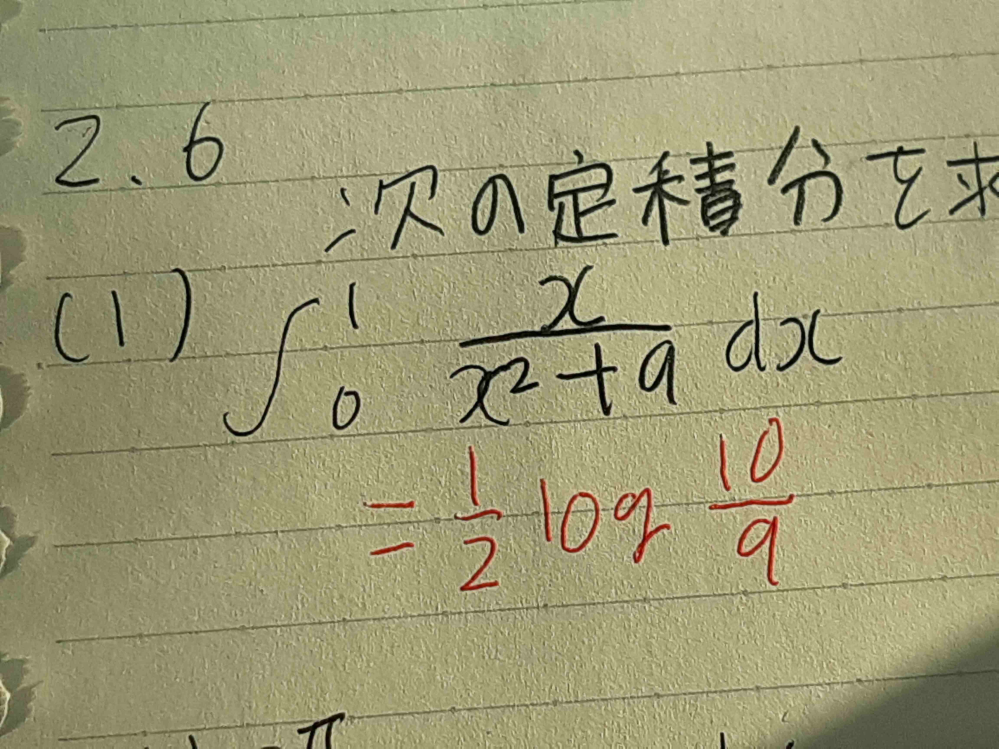 2.6
次の定積分を求
(1) ∫₀¹ x/(x²+9) dx
= 1/2 log 10/9
π